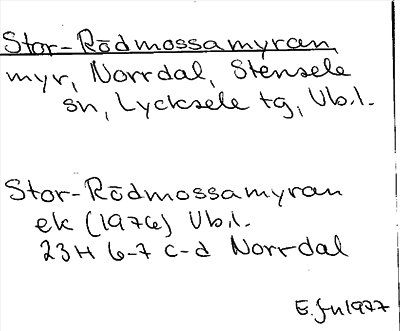 Stor-Rödmossamyran
myr, Norrdal, Stensele
sn, Lycksele tg, Vb.l.
Stor-Rödmossamyran
ek (1976) Vb.l.
23H 6-7 c-d Norrdal
1977